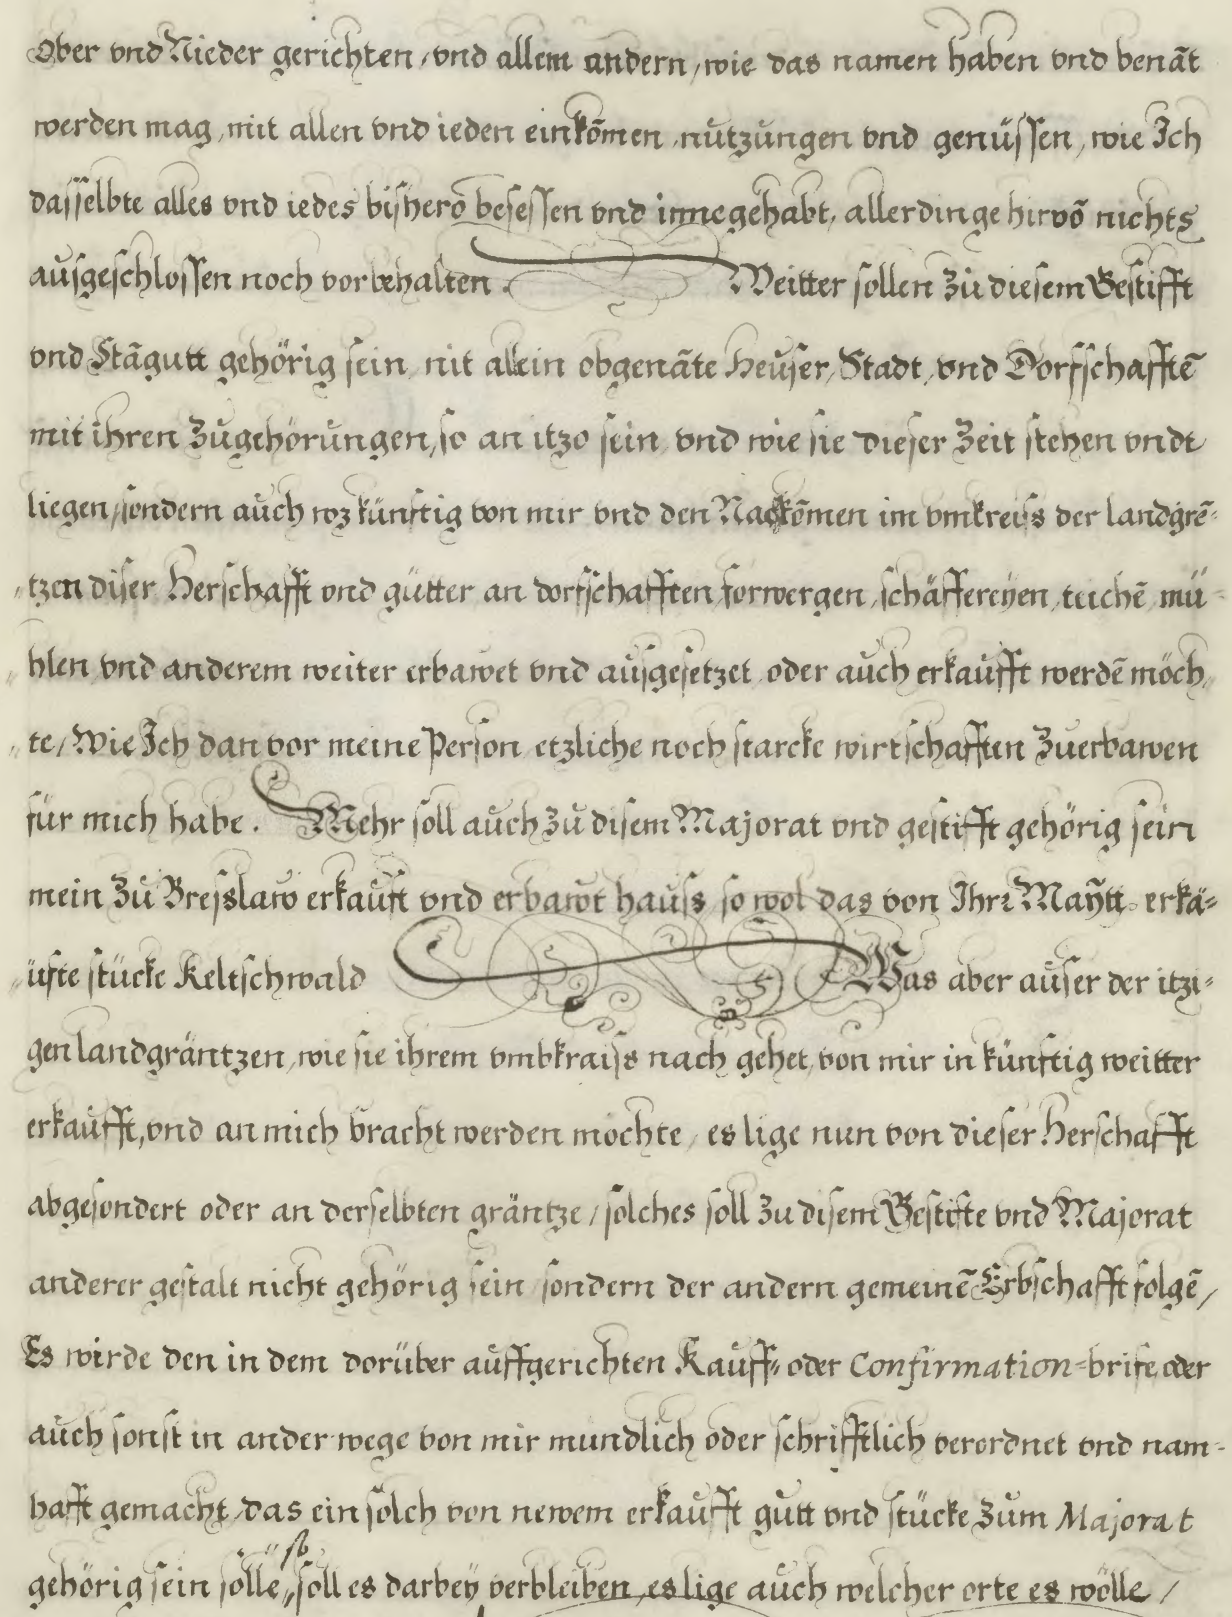 Ober vnd Nieder gerichten, vnd allem andern, wie das namen haben vnd benāt
werden mag, mit allen vnd ieden einkōmen, nützungen vnd genüssen, wie Ich
dasselbte alles vnd iedes bishero besessen vnd innegehabt, allerdinge hirvō nichts
ausgeschlossen noch vorbehalten. Weitter sollen zu diesem Gestifft
vnd Stāgutt gehörig sein, nit allein obgenāte Heuser, Stadt, vnd Dorfschafftē
mit ihren zugehörungen, so an itzo sein, vnd wie sie dieser zeit stehen vndt
liegen, sondern auch wz künftig von mir vnd den Nachkōmen im vmkreiss der landgrē-
tzen diser Herschafft vnd gütter an dorfschafften forwergen, schäffereyen, teichē, mü-
hlen vnd anderem weiter erbawet vnd ausgesetzet, oder auch erkaufft werdē möch,
te, Wie Ich dan vor meine Person etzliche noch starcke wirtschafften zuerbawen
für mich habe. Mehr soll auch zu disem Majorat vnd gestifft gehörig sein
mein zu Bresslaw erkauft vnd erbawt hauss, so wol das von Ihr: Maÿtt. erkä-
üfte stücke Keltschwald Was aber auser der itzi-
gen landgräntzen, wie sie ihrem vmbkraiss nach gehet, von mir in künftig weitter
erkaufft, vnd an mich bracht werden mochte, es lige nun von dieser Herschafft
abgesondert oder an derselbten gräntze, solches soll zu disem Gestifte vnd Majorat
anderer gestalt nicht gehörig sein, sondern der andern gemeinē Erbschafft folgē,
Es wirde den in dem dorüber auffgerichten Kauff- oder Confirmation-brife, oder
auch sonst in ander wege von mir mundlich oder schrifftlich verordnet vnd nam-
hafft gemacht, das ein solch von newem erkaufft gutt vnd stücke zum Majorat
gehörig sein solle, so soll es darbey verbleiben, es lige auch welcher orte es wölle,